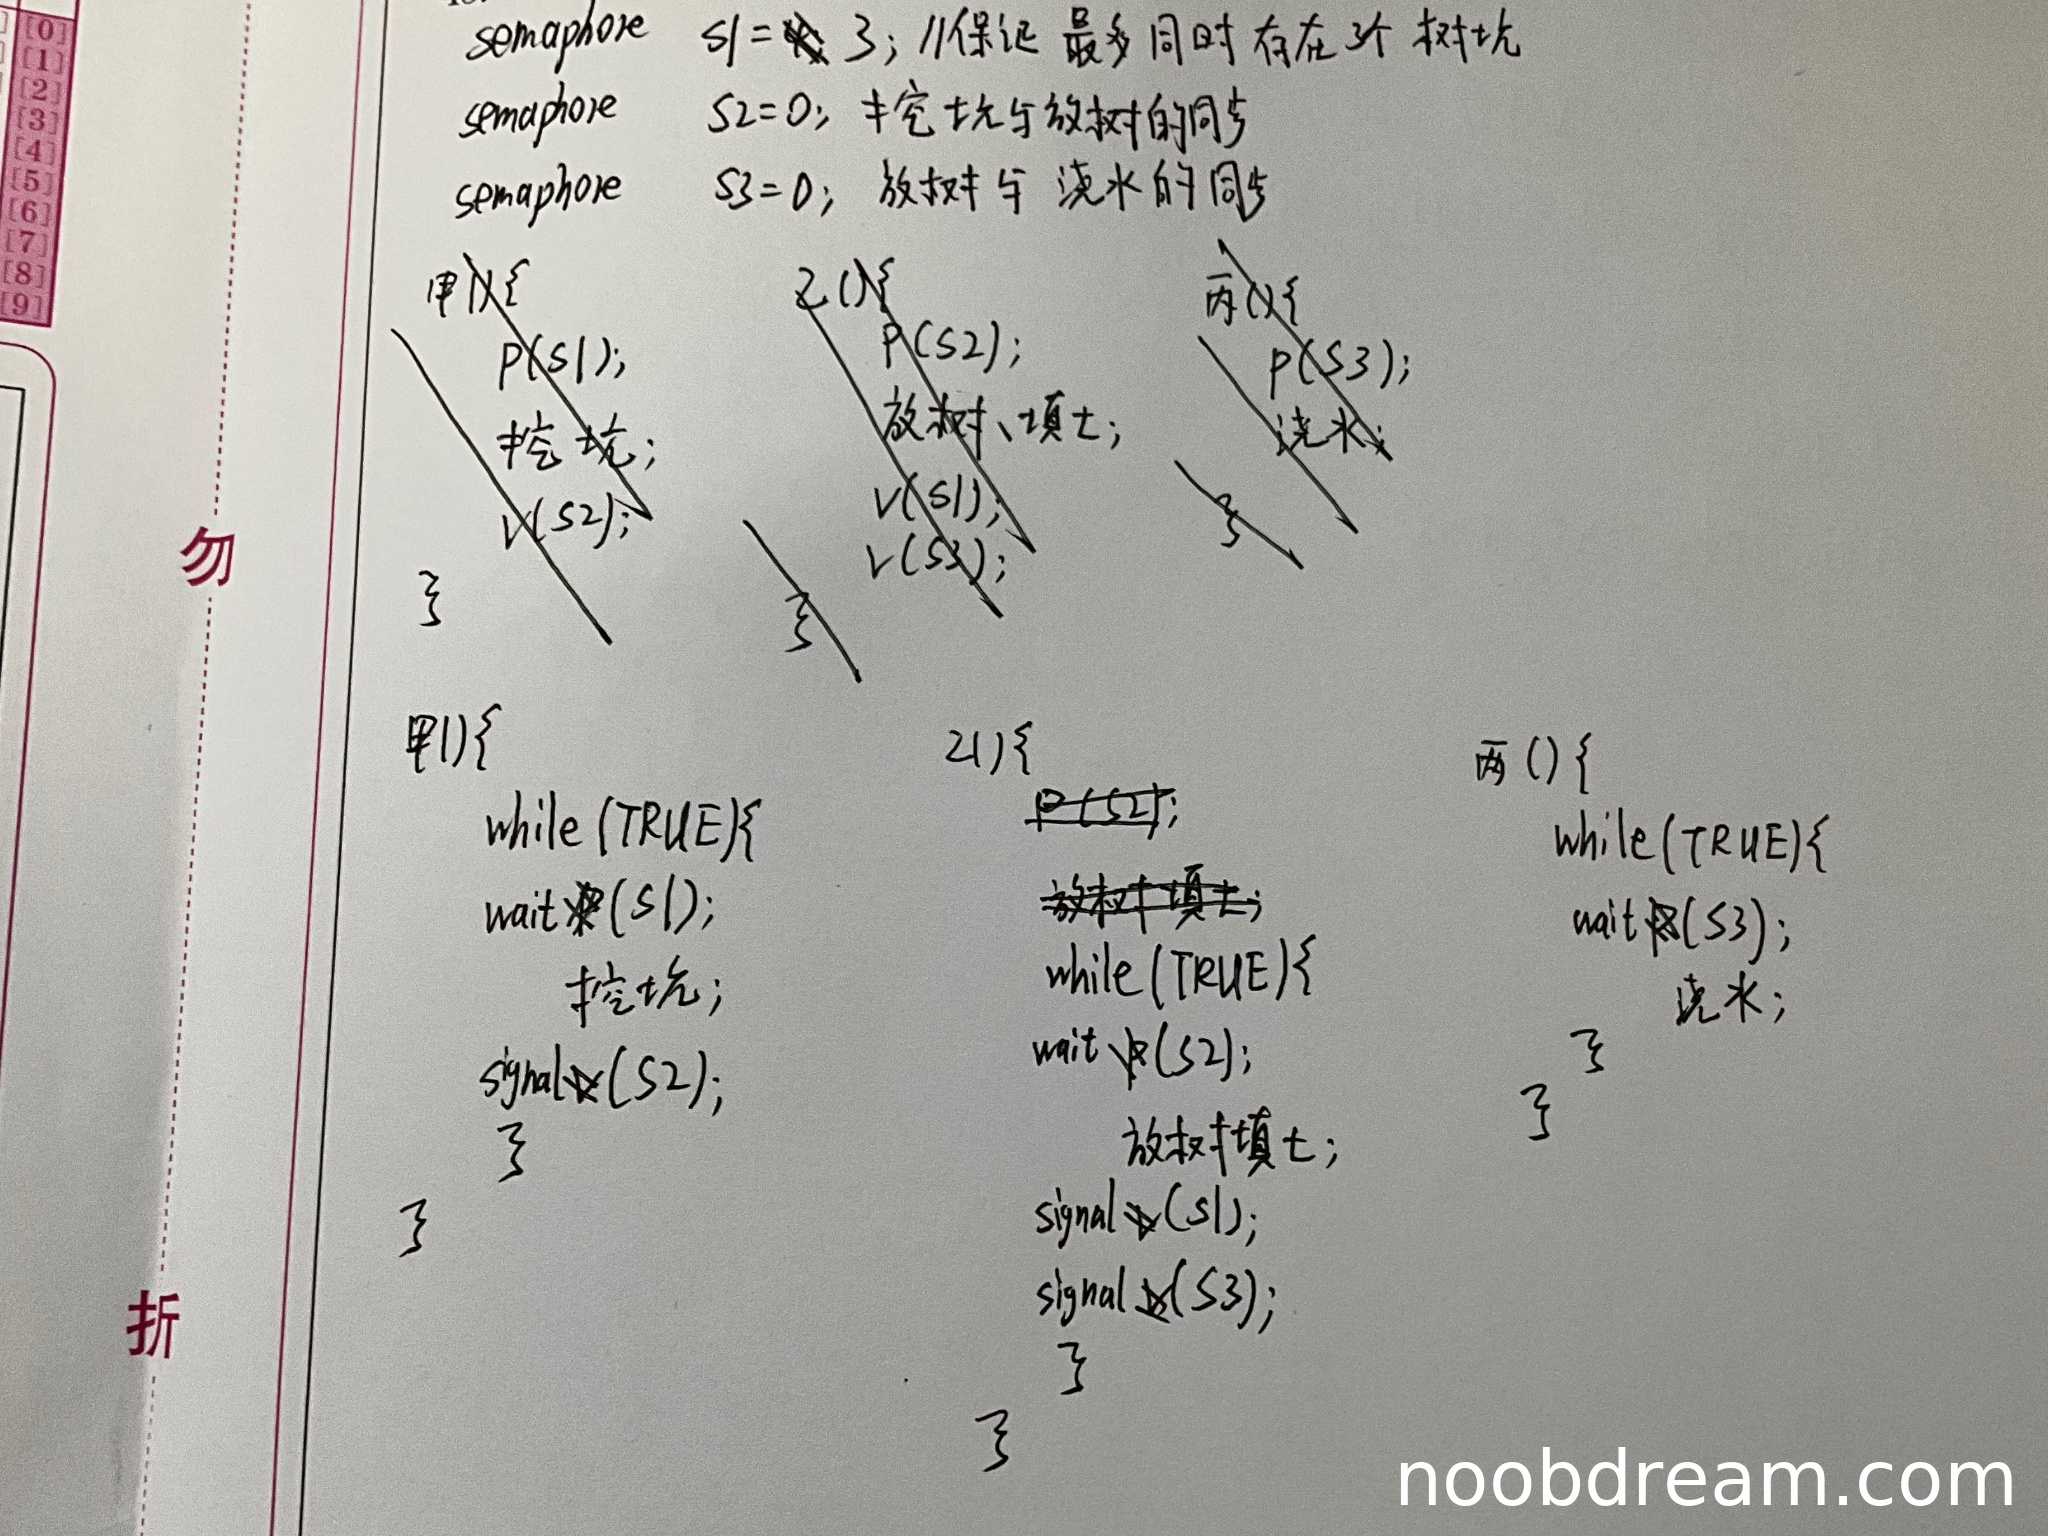 [0]
[1]
[2]
[3]
[4]
[5]
[6]
[7]
[8]
[9]
勿
折
semaphore s1 = 3; //保证 最多同时存在3个 树坑
semaphore S2=0; 挖坑与放树的同步
semaphore S3=0; 放树与 浇水的同步
甲(){
P(S1);
挖坑;
V(S2);
}
乙(){
P(S2);
放树、填土;
V(S1);
V(S3);
}
丙(){
P(S3);
浇水;
}
甲(){
while(TRUE){
wait(S1);
挖坑;
signal(S2);
}
}
乙(){
P(S2);
放树填土;
while(TRUE){
wait(S2);
放树填土;
signal(S1);
signal(S3);
}
}
丙(){
while(TRUE){
wait(S3);
浇水;
}
}
noobdream.com